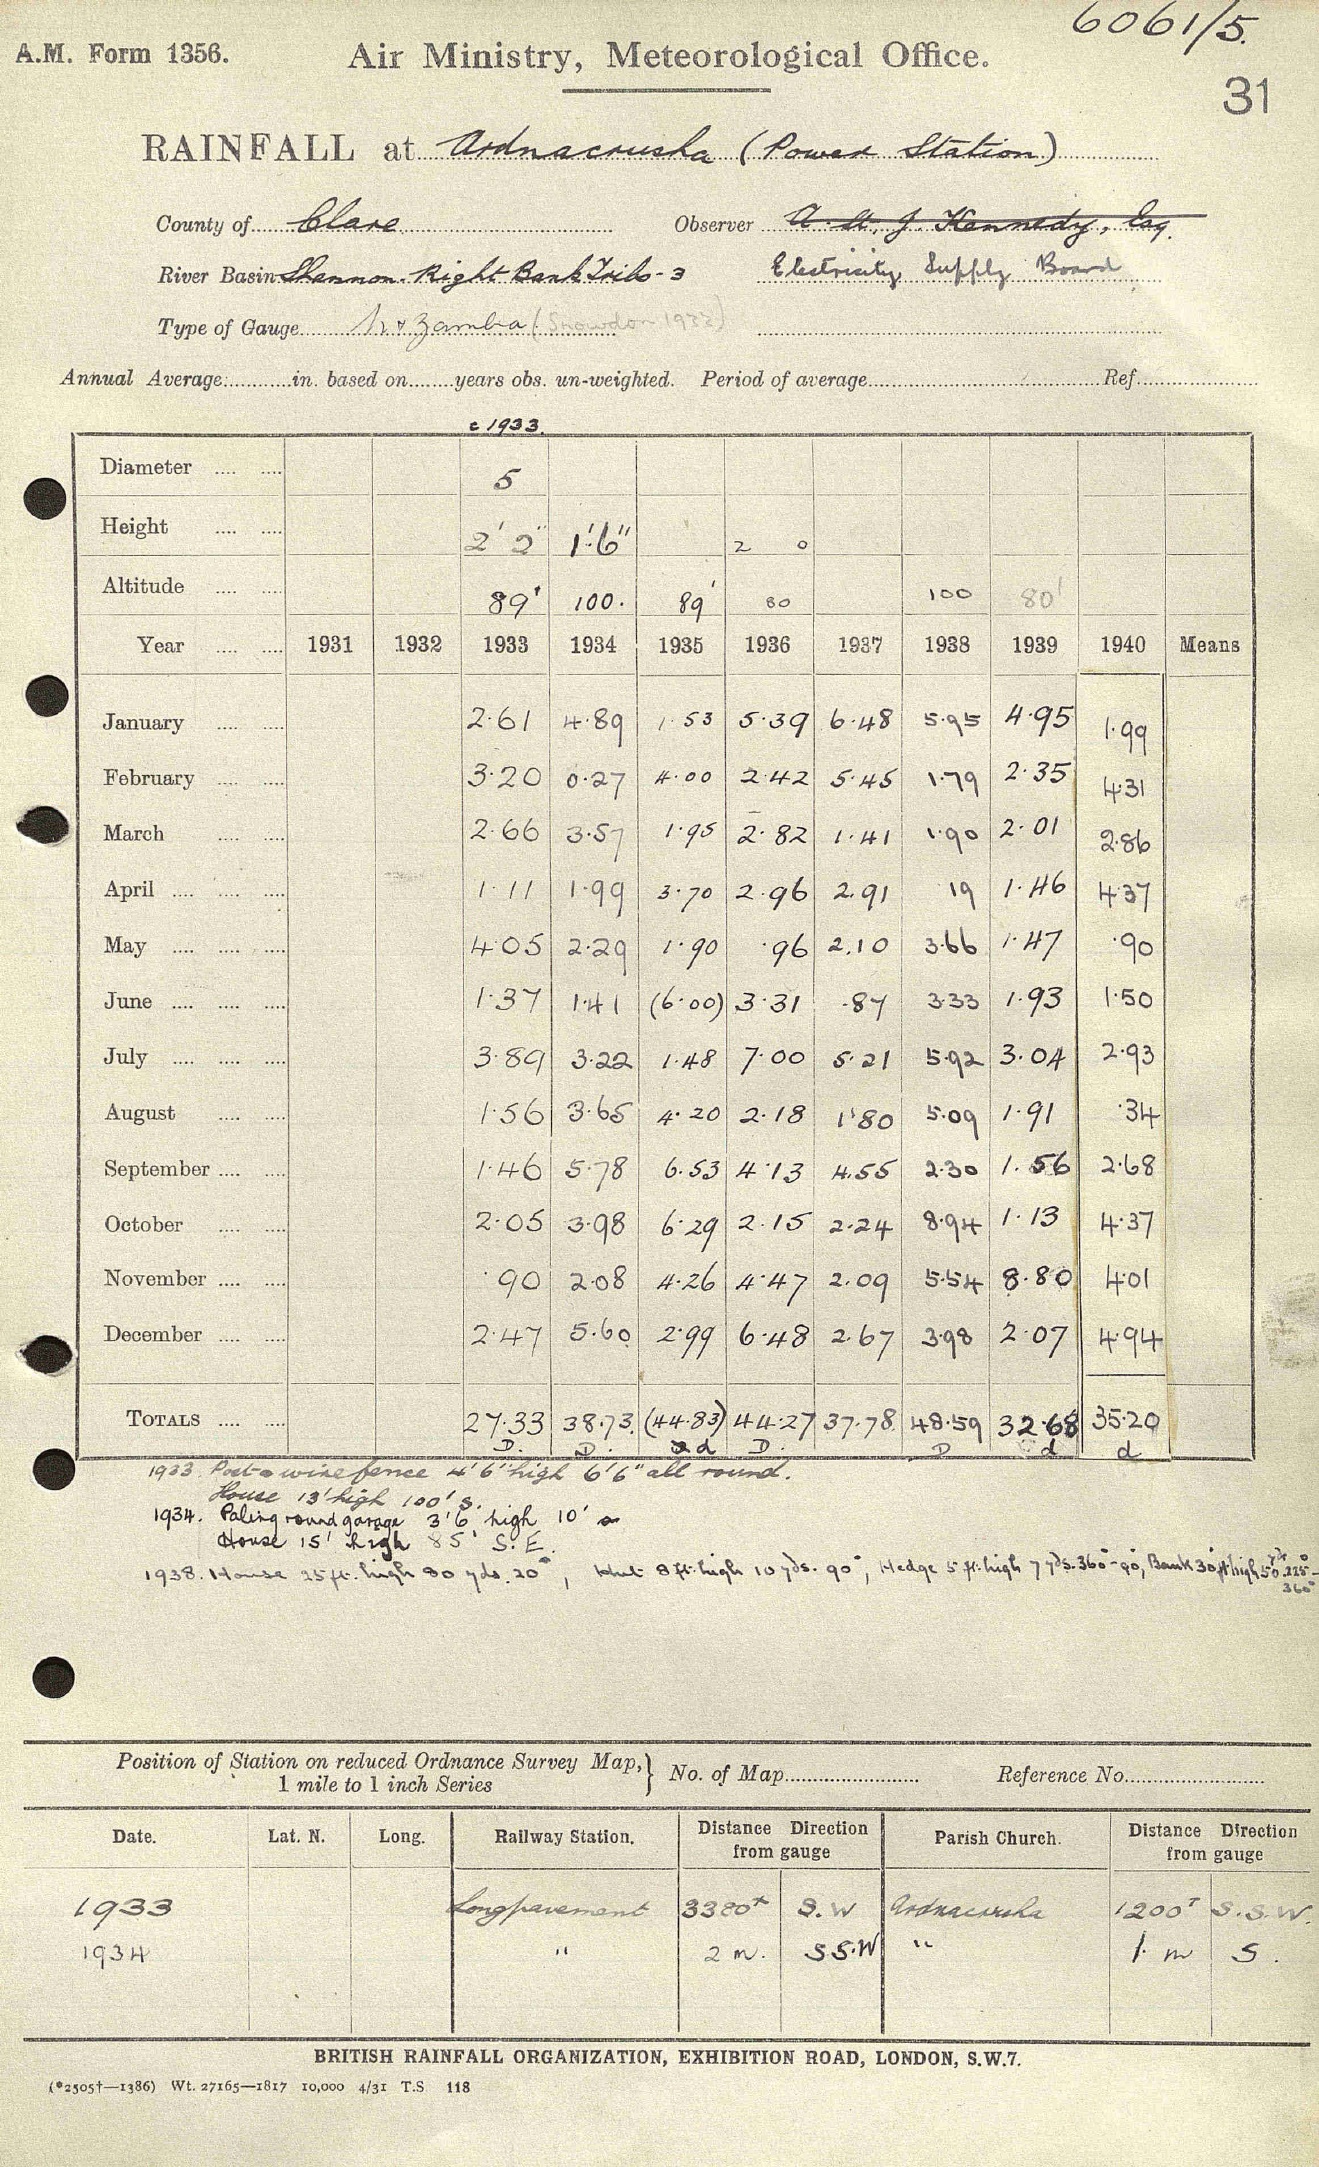 6061/5.
A.M. Form 1356. Air Ministry, Meteorological Office.
31
RAINFALL at Ardnacrusha (Power Station)
County of Clare Observer A. St. J. Kennedy, Esq.
River Basin Shannon. Right Bank Tribs - 3 Electricity Supply Board
Type of Gauge (Snowdon 1932)
Annual Average in. based on years obs. un-weighted. Period of average Ref.
c 1933.
Diameter 5
Height 2' 2" 1'.6" 2 0
Altitude 89' 100. 89' 80 100 80'
Year 1931 1932 1933 1934 1935 1936 1937 1938 1939 1940 Means
January 2.61 4.89 1.53 5.39 6.48 5.95 4.95 1.99
February 3.20 0.27 4.00 2.42 5.45 1.79 2.35 4.31
March 2.66 3.57 1.95 2.82 1.41 1.90 2.01 2.86
April 1.11 1.99 3.70 2.96 2.91 19 1.46 4.37
May 4.05 2.29 1.90 .96 2.10 3.66 1.47 .90
June 1.37 1.41 (6.00) 3.31 .87 3.33 1.93 1.50
July 3.89 3.22 1.48 7.00 5.21 5.92 3.04 2.93
August 1.56 3.65 4.20 2.18 1.80 5.09 1.91 .34
September 1.46 5.78 6.53 4.13 4.55 2.30 1.56 2.68
October 2.05 3.98 6.29 2.15 2.24 8.94 1.13 4.37
November .90 2.08 4.26 4.47 2.09 5.54 8.80 4.01
December 2.47 5.60 2.99 6.48 2.67 3.98 2.07 4.94
TOTALS 27.33 38.73. (44.83) 44.27 37.78 48.59 32.68 35.20
D. D. d D. D d d
1933. Post & wire fence 4'6" high 6'6" all round.
House 13' high 100' S.
1934. Paling round garage 3'6 high 10'
House 15' high 85' S.E.
1938. House 25 ft. high 80 yds. 20°, Hut 8 ft. high 10 yds. 90°, Hedge 5 ft. high 7 yds. 360°-90°, Bank 30 ft high 50 yds 225°-
360°
Position of Station on reduced Ordnance Survey Map,} No. of Map Reference No.
1 mile to 1 inch Series
Date. Lat. N. Long. Railway Station. Distance Direction Parish Church. Distance Direction
from gauge from gauge
1933 Longpavement 3380ˣ S.W Ardnacrusha 1200ˣ S.S.W.
1934 " 2 m. SS.W " 1 m S.
BRITISH RAINFALL ORGANIZATION, EXHIBITION ROAD, LONDON, S.W.7.
(*2505†—1386) Wt. 27165—1817 10,000 4/31 T.S 118